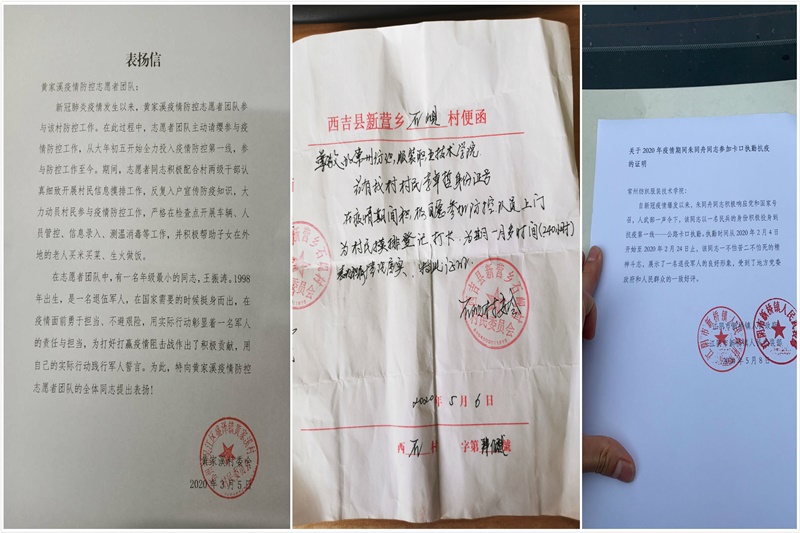 表扬信
黄家溪疫情防控志愿者团队：
新冠肺炎疫情发生以来，黄家溪疫情防控志愿者团队参
与该村防控工作。在此过程中，志愿者团队主动请缨参与疫情
防控工作，从大年初五开始全力投入防疫第一线，参
与防控工作至今。期间，志愿者同志积极配合村两级干部认
真细致开展村民信息摸排工作，反复入户宣传防疫知识，大
力动员村民参与防疫工作，严格在检查点开展车辆、人
员管控、信息录入、测温消毒等工作，并积极帮助子女在外
地的老人买米买菜、生火做饭。
在志愿者团队中，有一名年级最小的同志，王振涛，1998
年出生，是一名退伍军人，在国家需要的时候挺身而出，在
疫情面前勇于担当、不避艰险，用实际行动彰显着一名军人
的责任与担当，为打好打赢疫情阻击战作出了积极贡献，用
自己的实际行动践行军人誓言。为此，特向黄家溪疫情防控
志愿者团队的全体同志提出表扬！
黄家溪村委会
2020年3月5日
西吉县新营乡石岘村便函
尊敬的常州纺织服装职业技术学院
兹有我村村民李
身份证号
在疫情期间积极自愿参加防控队定上门
为村民摸排登记打卡，为期一月多时间(240小时)
情况属实，特此证明
2020年5月6日
西石村字第 号
关于2020年疫情期间朱同舟同志参加卡口执勤抗疫
的证明
常州纺织服装技术学院：
自新冠疫情爆发以来，朱同舟同志积极响应党和国家号
召，人武部一声令下，该同志以一名民兵的身份积极投身到
抗疫第一线——公路卡口执勤，执勤时间从2020年2月4日
开始至2020年2月24日止。该同志一不怕苦二不怕死的精
神斗志，展示了一名退役军人的良好形象，受到了地方党委
政府和人民群众的一致好评。
5月8日